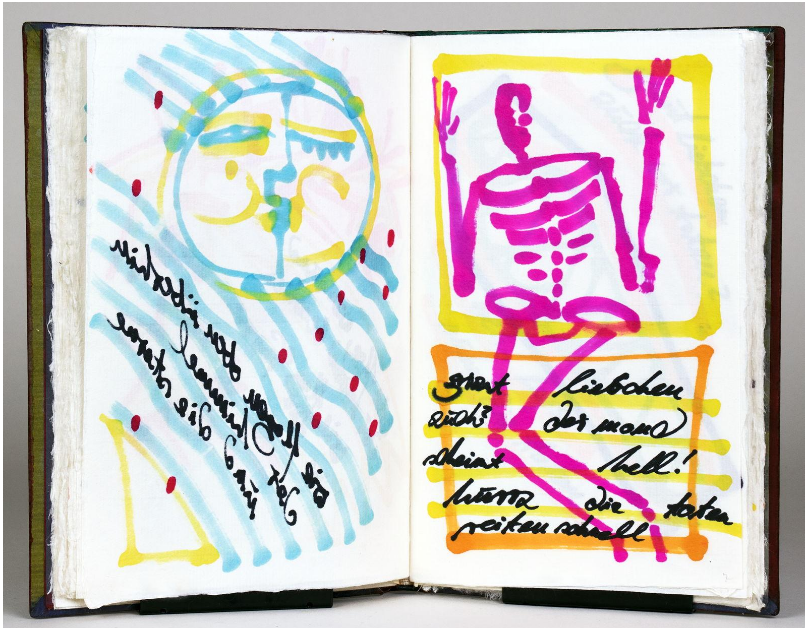 wie flogen oben überhin
der himmel
und die sterne
graut liebchen
auch? der mond
scheint hell!
hurra die toten
reiten schnell